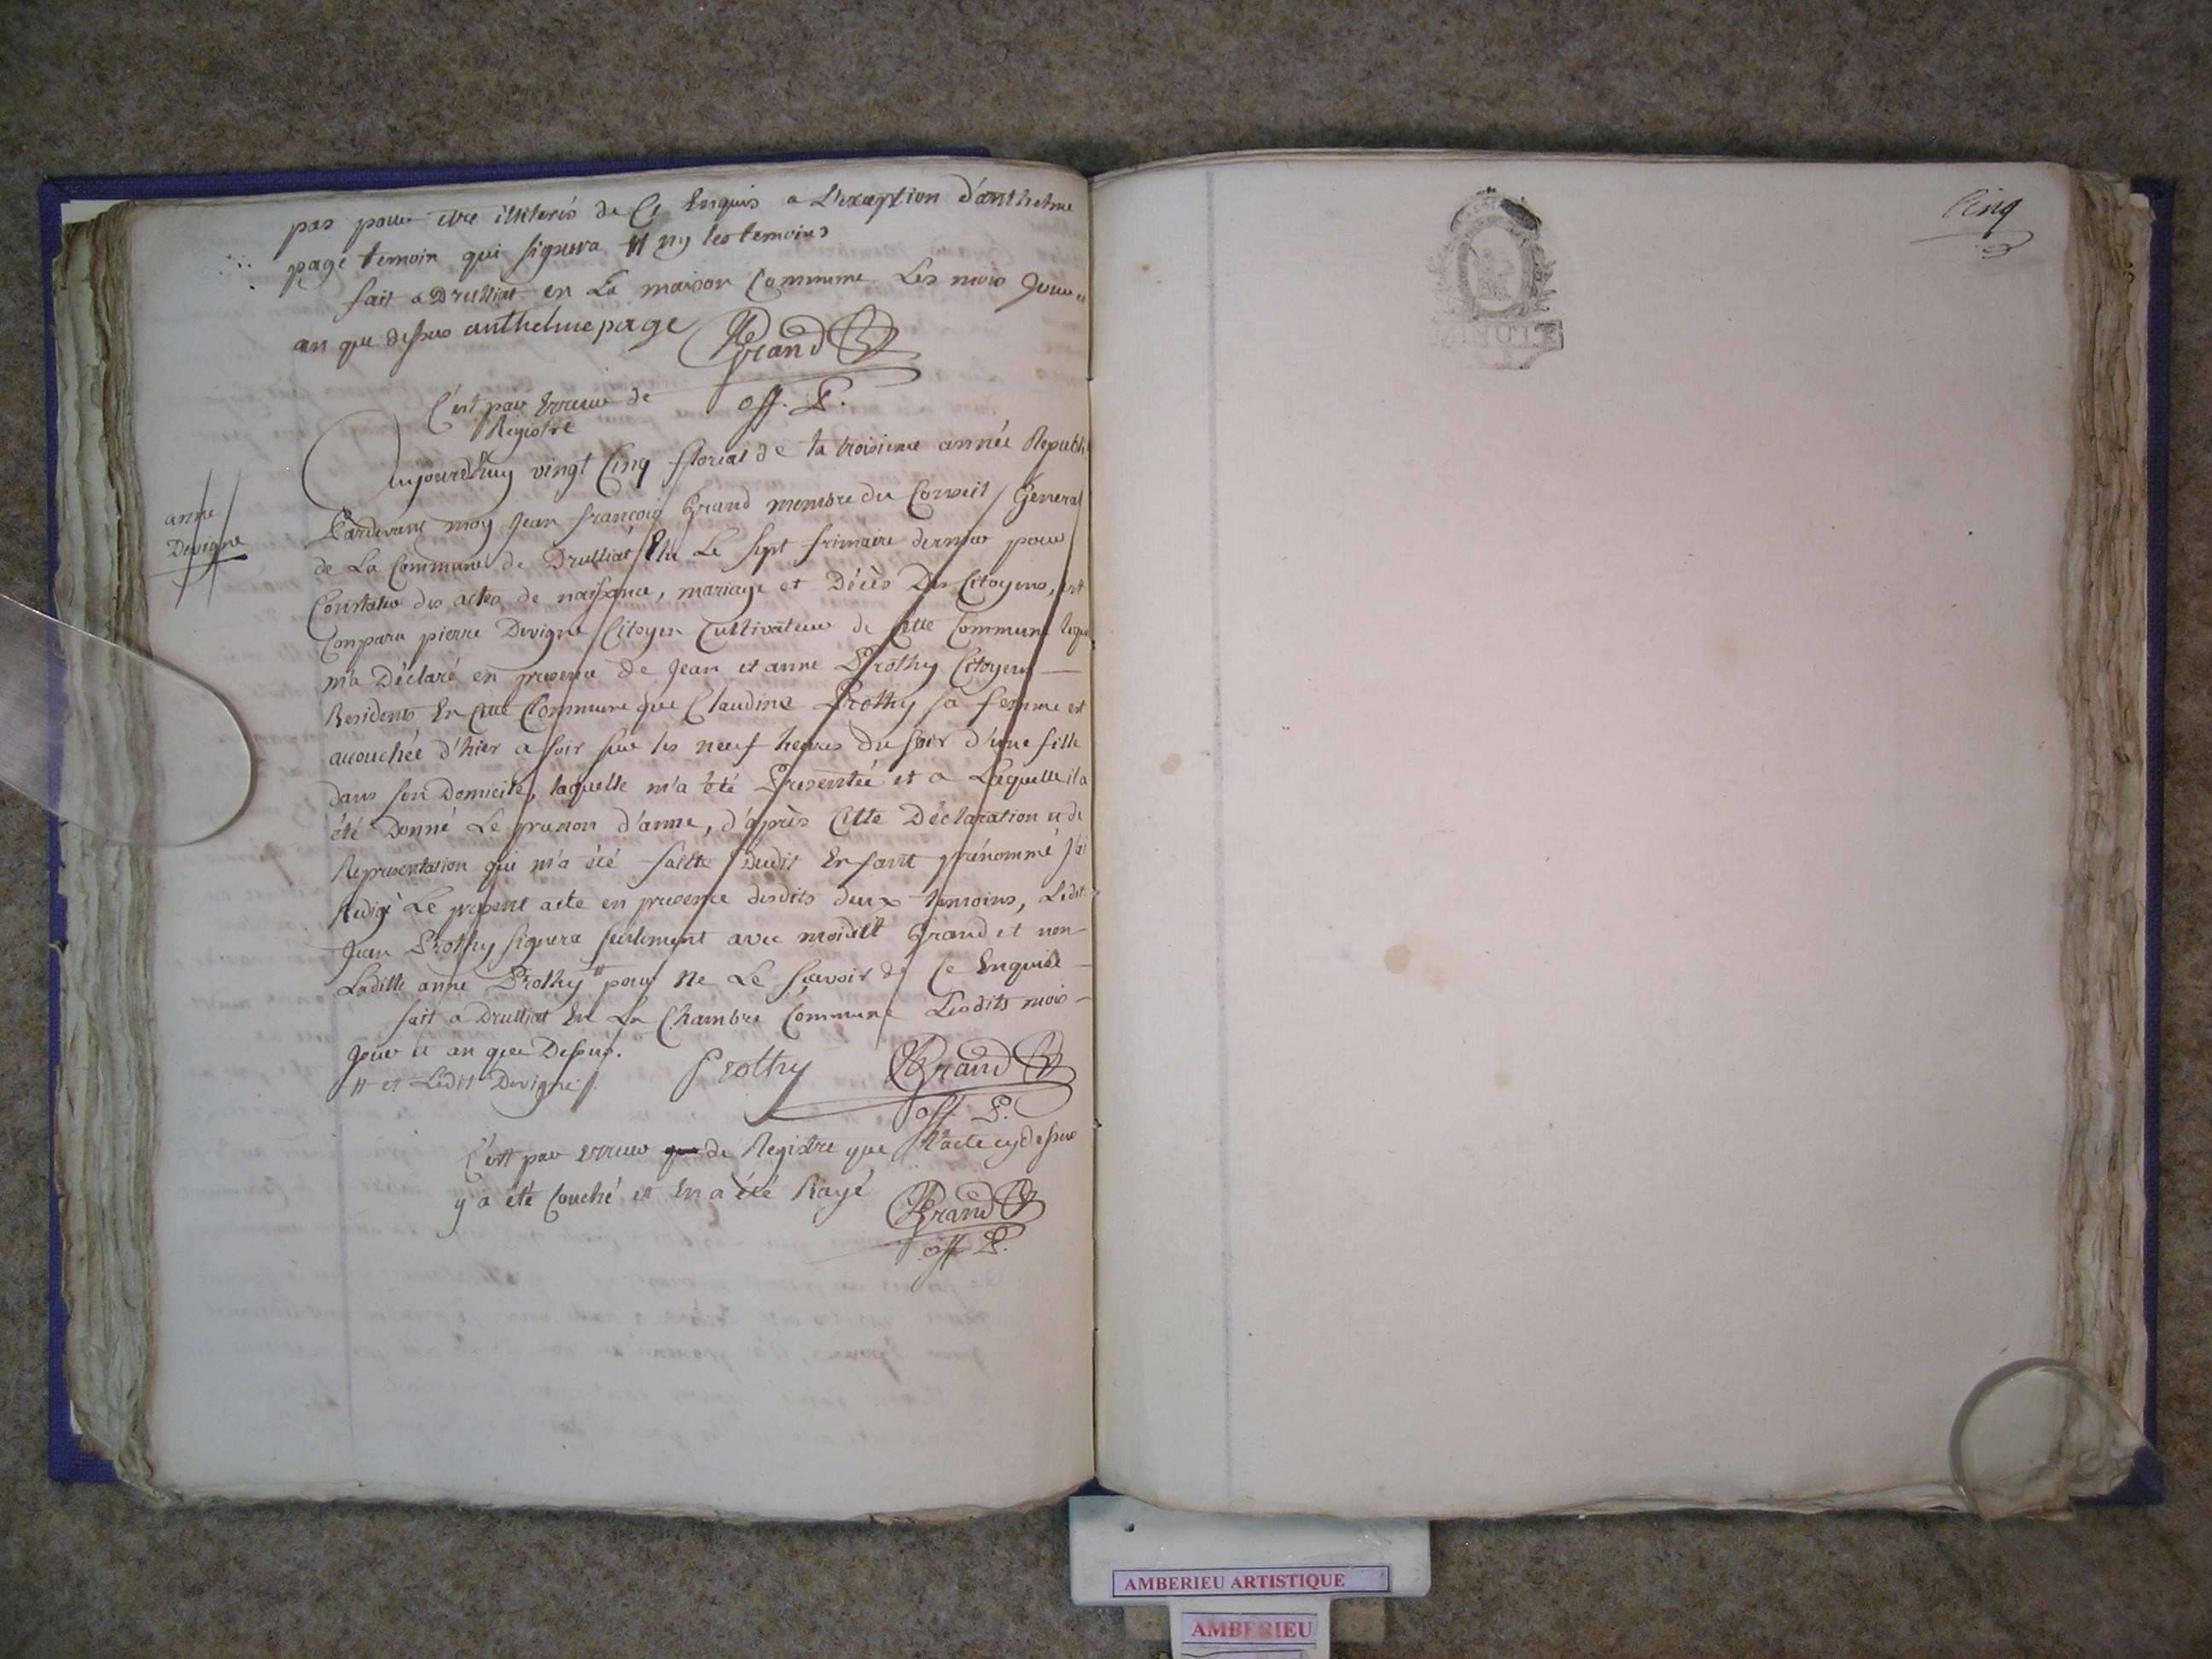 pas pour être illeterés de Ce Enquis a L'exeption d'anthelme
page temoin qui signera # ny les temoins
fait a Drulliat en La maison Commune Les mois Jour et
an que dessus anthelme page Grand
off. P.
C'est par Erreur de
Registre
Aujourdhuy vingt Cinq floreal de la troisieme année Republi
Pardevant moy Jean françois Grand membre du Conseil General
de La Commune de Drulliat Elu Le sept frimaire dernier pour
Constater des actes de naissance, mariage et Décès Des Citoyens, est
Comparu pierre Devigne Citoyen Cultivateur de Cette Commune lequel
m'a Déclaré en presence de Jean et anne Prothy Citoyens
Residents En Cette Commune que Claudine Prothy sa femme est
acouchée d'hier a soir sur les neuf heures Du soir d'une fille
dans son Domicile, laquelle m'a été Presentée et a Laquelle il a
été Donné Le prenom d'anne, d'après Cette Déclaration et de
Representation qui m'a été faitte Dudit Enfant prénommé J'ai
Redigé Le present acte en presence desdits deux temoins, Ledit
Jean Prothy signera seulement avec moidit Grand et non
Laditte anne Prothy # pour Ne Le scavoir de Ce Enquise
fait a Drulliat En La Chambre Commune Lesdits mois
Jour et an que Dessus.
# et Ledit Devigne /. Prothy Grand
off. P.
C'est par Erreur que de Registre que L'acte cy dessus
y a été Couché et En a été Rayé
Grand
off. P.
anne
Devigne
Cinq
AMBERIEU ARTISTIQUE
AMBERIEU